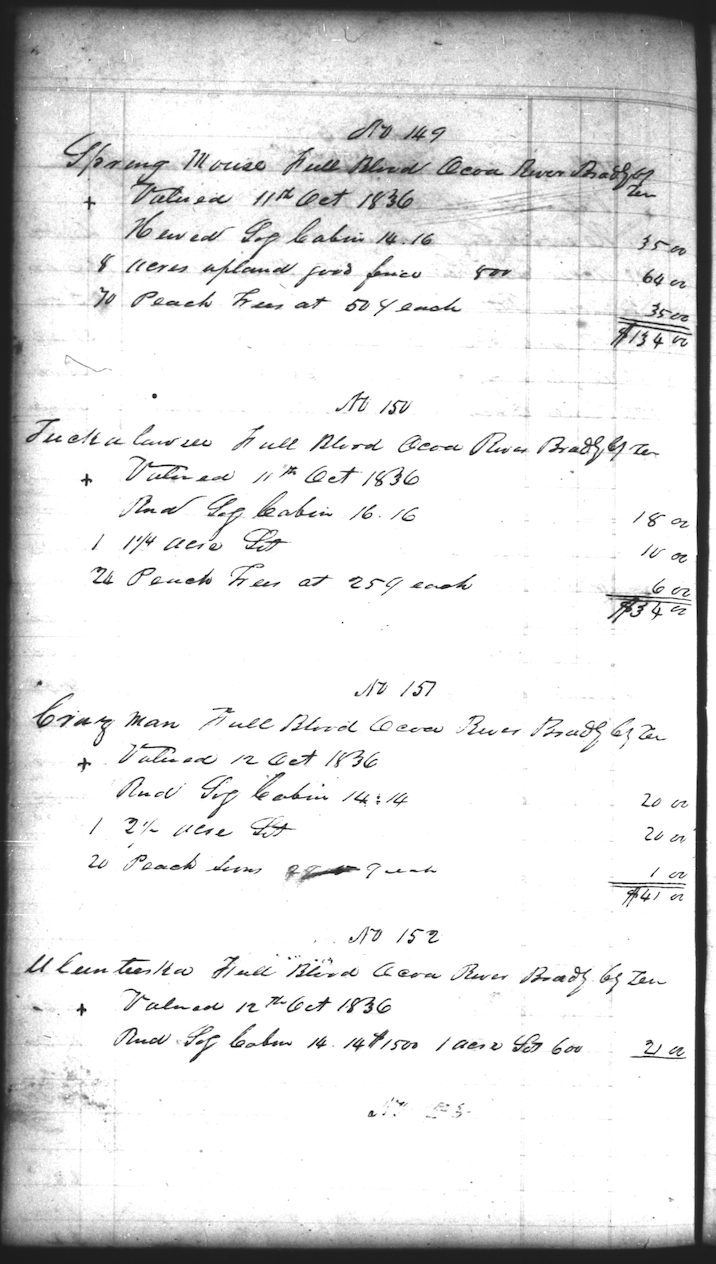 No 149
Spring Mouse Full Blood Ocoa River Bradly Cy
Ten
+ Valued 11th Oct 1836
Hewed Log Cabin 14.16 35 00
8 acres upland good fence 800 64 00
70 Peach Trees at 50 ¢ each 35 00
$134 00
No 150
Full Blood Ocoa River Bradly Cy Ten
+ Valued 11th Oct 1836
Rnd Log Cabin 16.16 18 00
1 1/4 acre Lot 10 00
24 Peach Trees at 25 ¢ each 6 00
$34 00
No 151
Crazy Man Full Blood Ocoa River Bradly Cy Ten
+ Valued 12 Oct 1836
Rnd Log Cabin 14:14 20 00
1 acre Lot 20 00
20 Peach ¢ each 1 00
$41 00
No 152
Full Blood Ocoa River Bradly Cy Ten
+ Valued 12th Oct 1836
Rnd Log Cabin 14.14 $1500 1 acre Lot 600 21 00